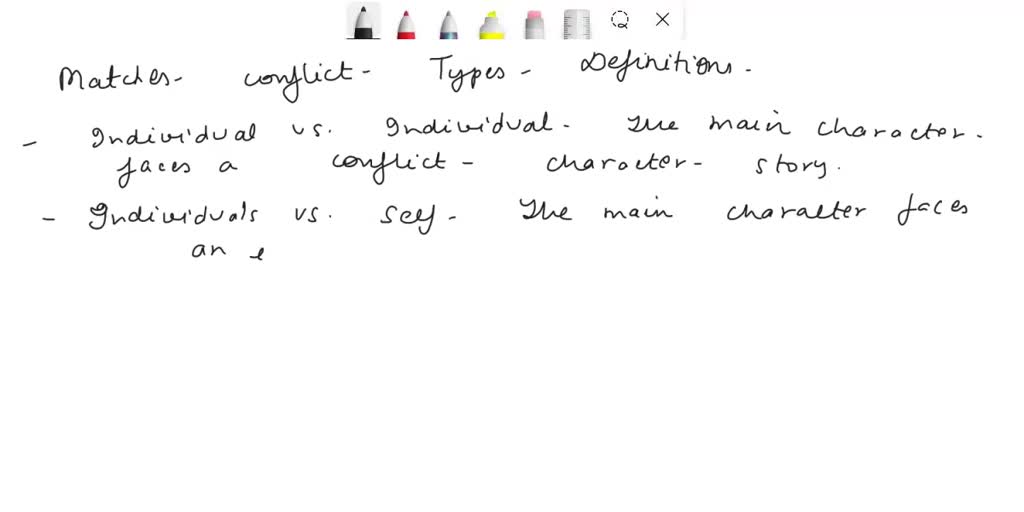 Matches- conflict- Types- Definitions.
- Individual vs. Individual- The main character.
faces a conflict- character- story.
- Individuals vs. self- The main character faces
an e